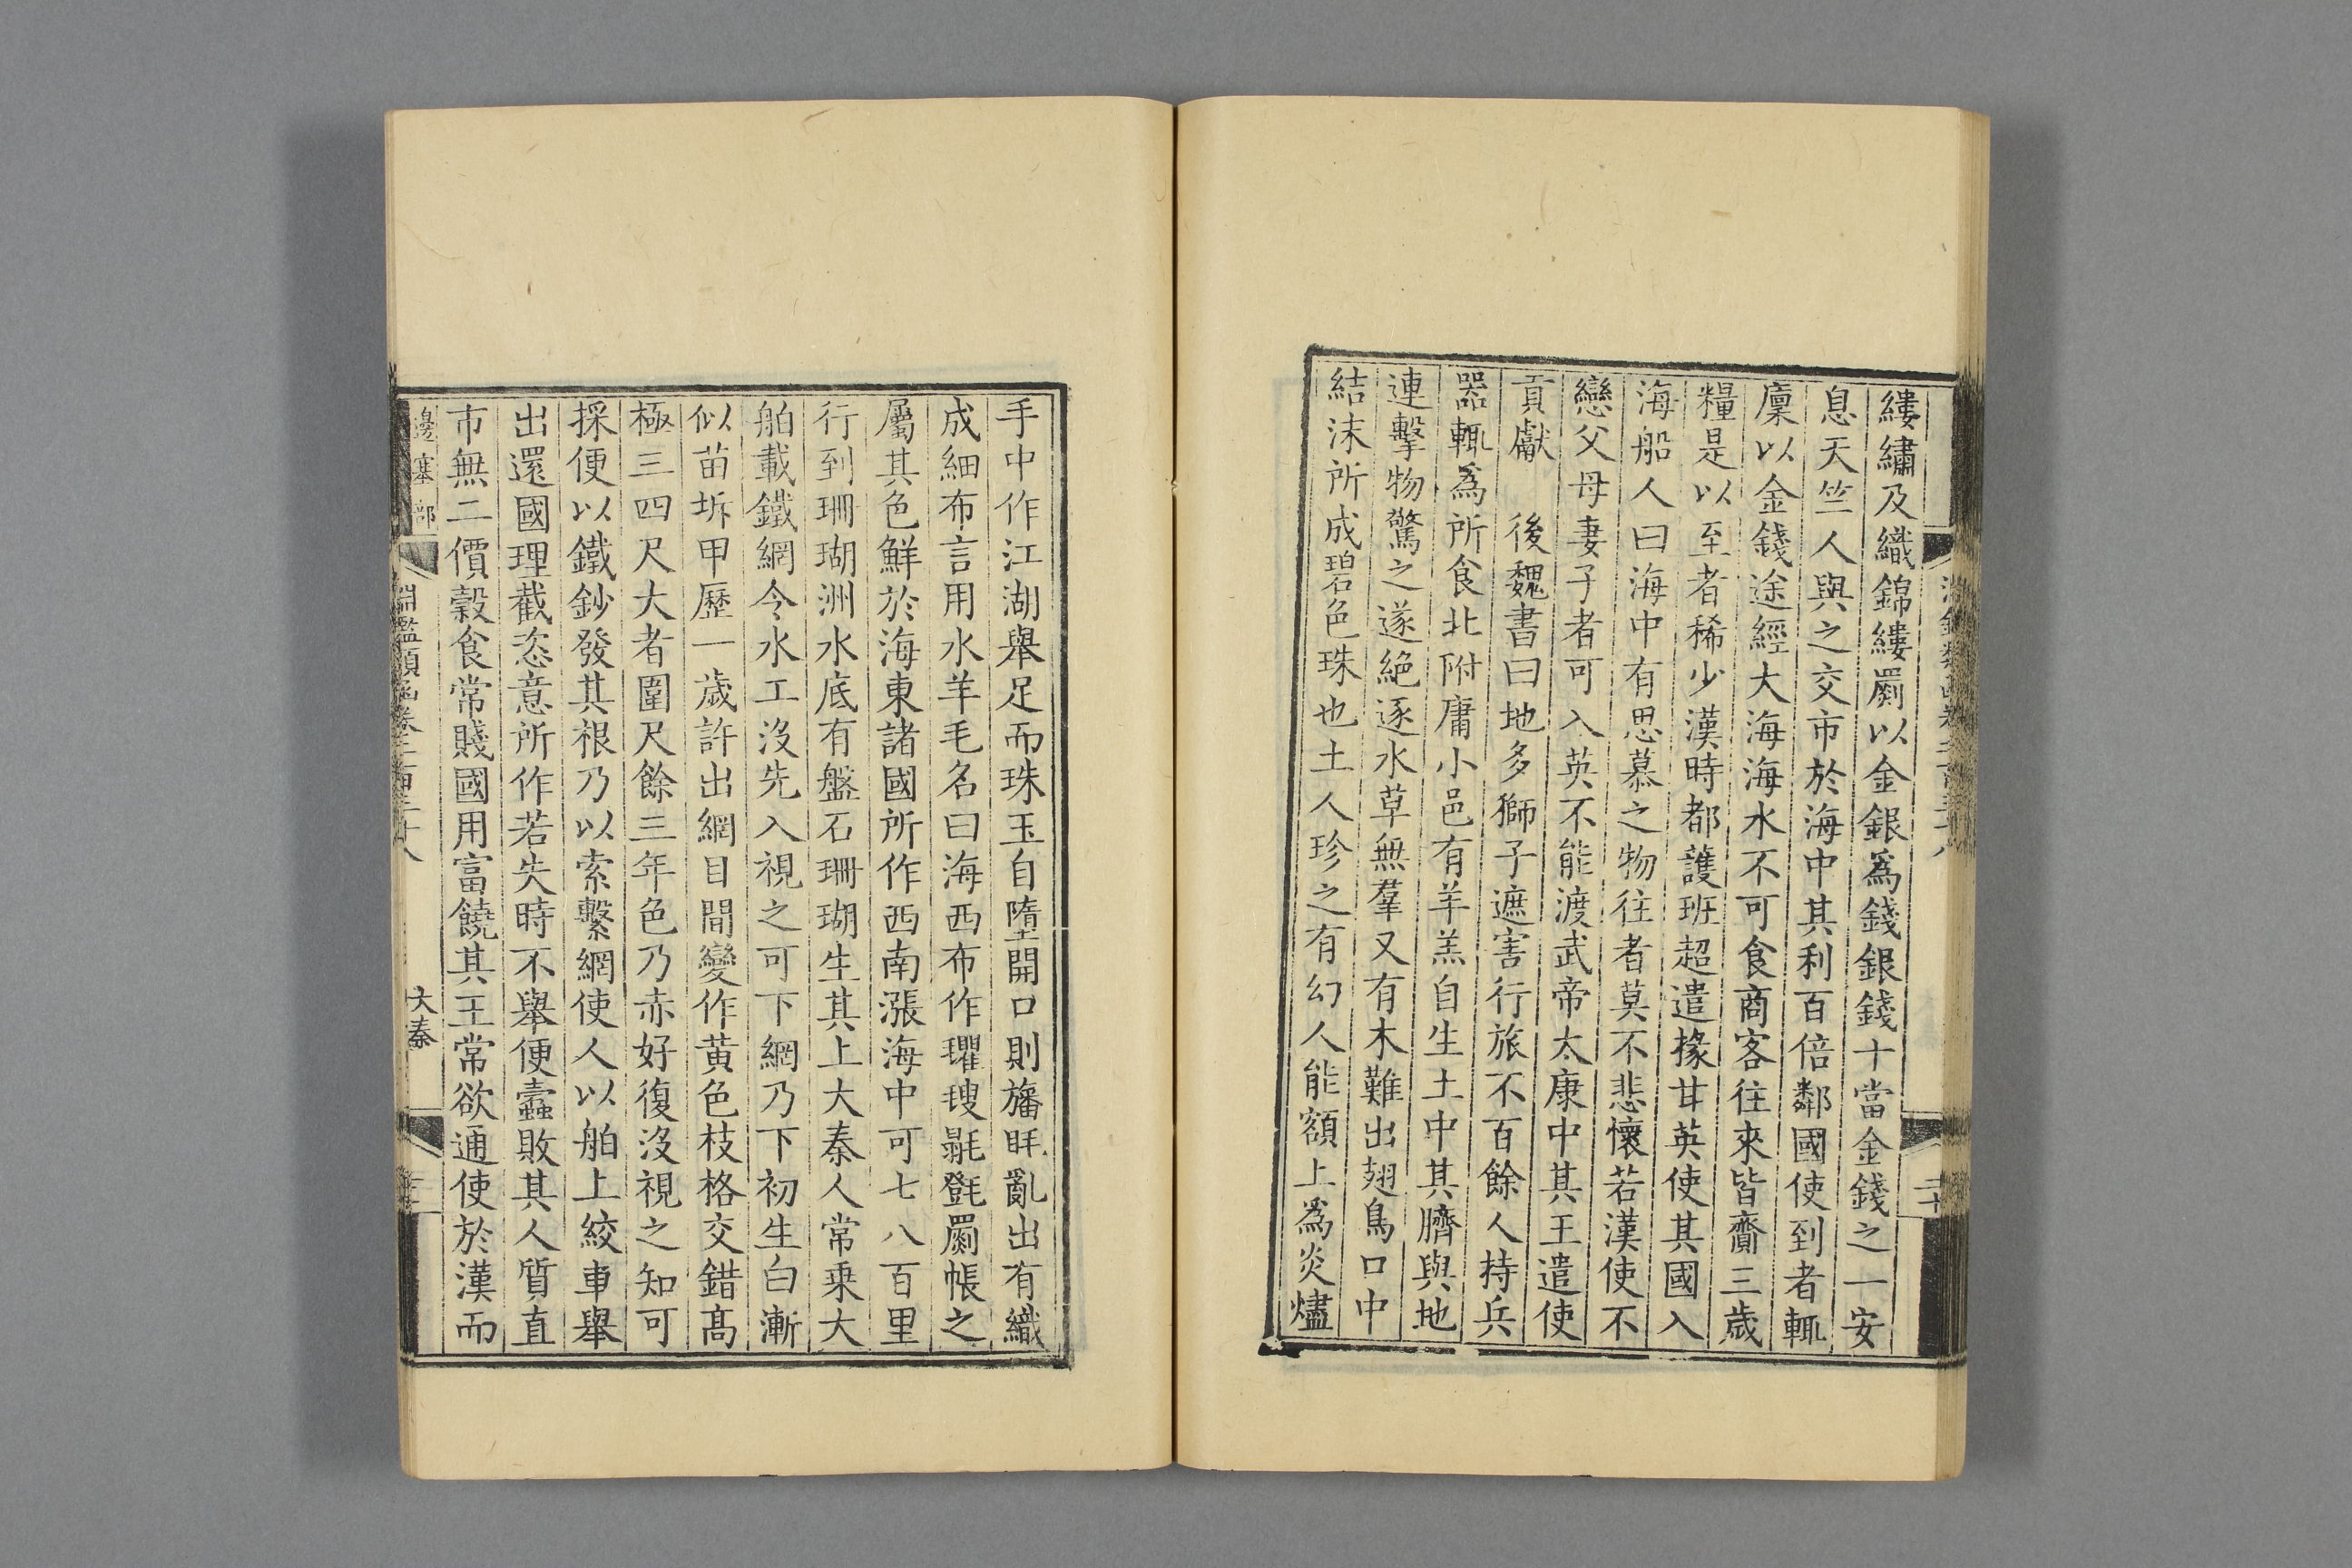 縷繡及織錦縷罽以金銀爲錢銀錢十當金錢之一安
息天竺人與之交市於海中其利百倍鄰國使到者輒
廩以金錢途經大海海水不可食商客往來皆齎三歲
糧是以至者稀少漢時都護班超遣掾甘英使其國入
海船人曰海中有思慕之物往者莫不悲懷若漢使不
戀父母妻子者可入英不能渡武帝太康中其王遣使
貢獻　後魏書曰地多獅子遮害行旅不百餘人持兵
器輒爲所食北附庸小邑有羊羔自生土中其臍與地
連擊物驚之遂絕逐水草無羣又有木難出翅鳥口中
結沫所成碧色珠也土人珍之有幻人能額上爲炎爐
手中作江湖舉足而珠玉自墮開口則旛毦亂出有織
成細布言用水羊毛名曰海西布作氍毹毾㲪罽帳之
屬其色鮮於海東諸國所作西南漲海中可七八百里
行到珊瑚洲水底有盤石珊瑚生其上大秦人常乘大
舶載鐵網令水工沒先入視之可下網乃下初生白漸
似苗坼甲歷一歲許出網目間變作黃色枝格交錯高
極三四尺大者圍尺餘三年色乃赤好復沒視之知可
採便以鐵鈔發其根乃以索繫網使人以舶上絞車舉
出還國理截恣意所作若失時不舉便蠹敗其人質直
市無二價穀食常賤國用富饒其王常欲通使於漢而
邊塞部　淵鑑類函卷二百三十八　大秦